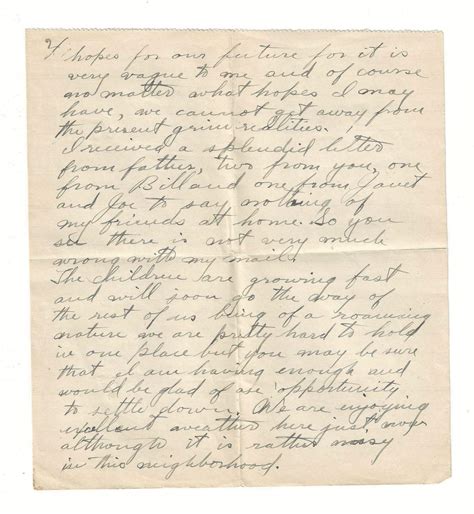 2/ hopes for our future for it is
very vague to me and of course
no matter what hopes I may
have, we cannot get away from
the present grim realities.
I received a splendid letter
from father, two from you, one
from Bill and one from Janet
and Joe to say nothing of
my friends at home. So you
see there is not very much
wrong with my mail.
The children are growing fast
and will soon go the way of
the rest of us being of a roaming
nature we are pretty hard to hold
in one place but you may be sure
that I am having enough and
would be glad of an opportunity
to settle down. We are enjoying
excellent weather here just now
although it is rather noisy
in this neighborhood.